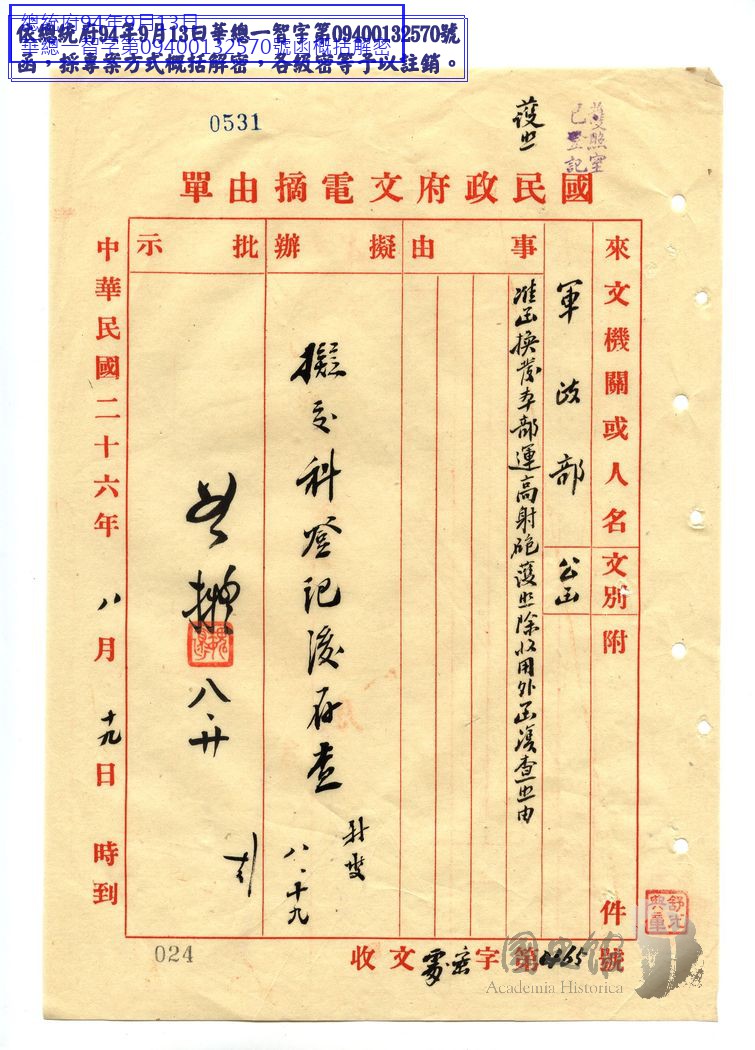 總統府94年9月13日
華總一智字第09400132570號函概括解密
依總統府94年9月13日華總一智字第09400132570號
函,採專案方式概括解密,各級密等予以註銷。
0531
護照
護照室
已登記
國民政府文電摘由單
來文機關或人名
軍政部
文別
公函
附
件
事由
准函換發本部運高射砲護照除收用外函復查照由
擬辦
擬交科登記後存查
八、十九
批示
如擬
八、廿
中華民國二十六年八月十九日 時到
收文
字第4465號
024
國史館
Academia Historica